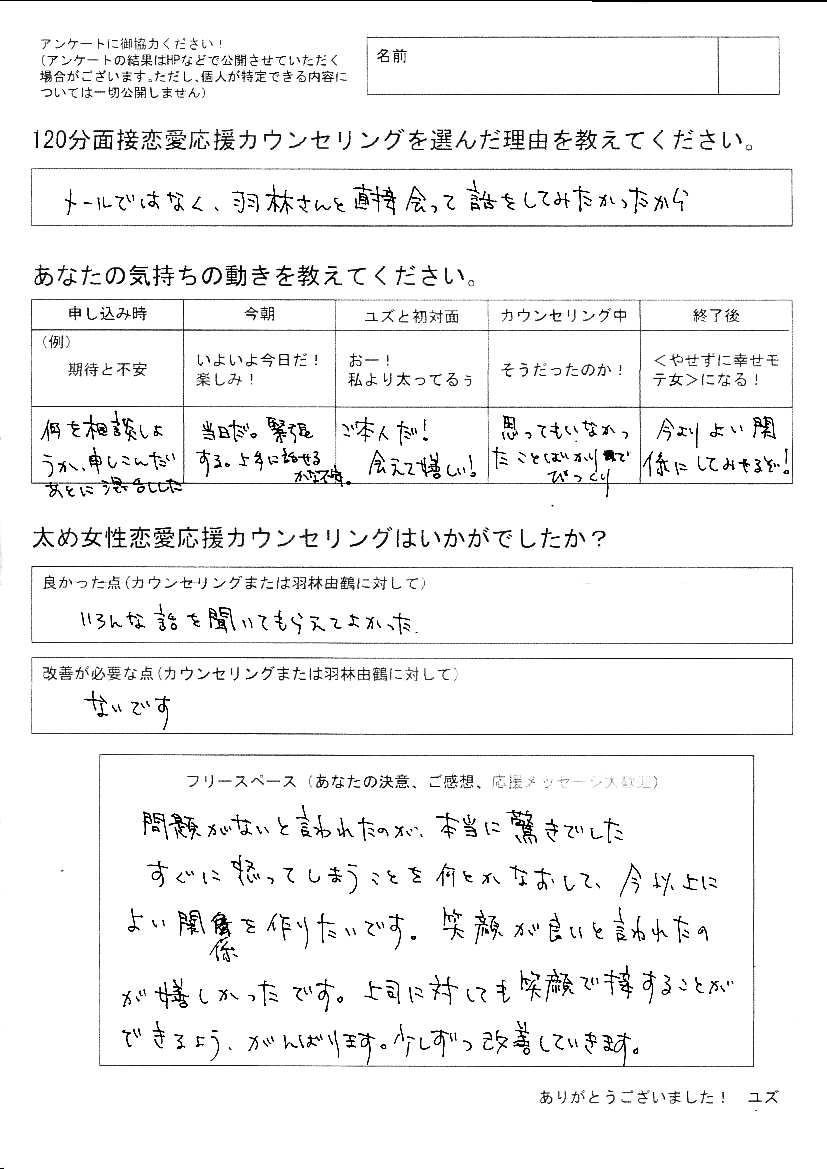 アンケートに御協力ください！
（アンケートの結果はHPなどで公開させていただく
場合がございます。ただし、個人が特定できる内容に
ついては一切公開しません）
名前
120分面接恋愛応援カウンセリングを選んだ理由を教えてください。
メールではなく、羽林さんと直接会って話をしてみたかったから
あなたの気持ちの動きを教えてください。
申し込み時 今朝 ユズと初対面 カウンセリング中 終了後
（例）
期待と不安
いよいよ今日だ！
楽しみ！
おー！
私より太ってるぅ
そうだったのか！
＜やせずに幸せモ
テ女＞になる！
何を相談しよ
うか、申しこんだ
あとに混乱した
当日だ。緊張
する。上手に話せる
かな不安。
ご本人だ！
会えて嬉しい！
思ってもいなかっ
たことばかりで
びっくり
今よりよい関
係にしてみせるぞ！
太め女性恋愛応援カウンセリングはいかがでしたか？
良かった点（カウンセリングまたは羽林由鶴に対して）
いろんな話を聞いてもらえてよかった．
改善が必要な点（カウンセリングまたは羽林由鶴に対して）
ないです
フリースペース（あなたの決意、ご感想、応援メッセージ大歓迎）
問題がないと言われたのが、本当に驚きでした
すぐに怒ってしまうことを何とかなおして、今以上に
よい関係を作りたいです。笑顔が良いと言われたの
が嬉しかったです。上司に対しても笑顔で接することが
できるよう、がんばります。少しずつ改善していきます。
ありがとうございました！ ユズ